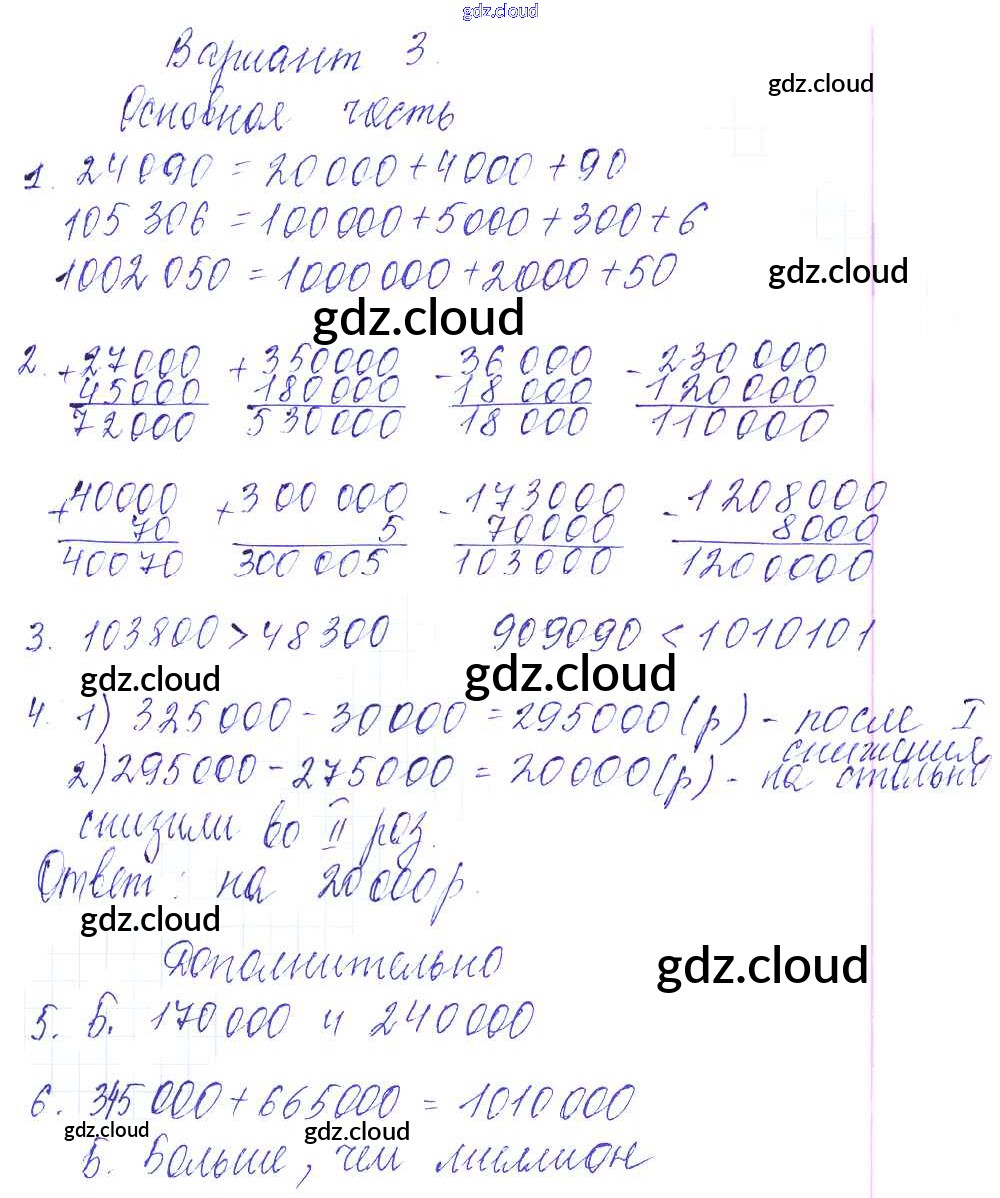 gdz.cloud
Вариант 3.
gdz.cloud
Основная часть
1. 24 090 = 20 000 + 4000 + 90
105 306 = 100 000 + 5000 + 300 + 6
1002 050 = 1000 000 + 2000 + 50
gdz.cloud
gdz.cloud
2. + 27000 + 350000 - 36 000 - 230 000
45000 180000 18 000 120 000
72000 530000 18 000 110000
+ 40000 + 300 000 - 173000 - 1208000
70 5 70000 8000
40070 300 005 103000 1200000
3. 103800 > 48300 909090 < 1010101
gdz.cloud gdz.cloud
4. 1) 325 000 - 30 000 = 295000 (р) - после I
снижения
2) 295000 - 275000 = 20000 (р) - на столько
снизили во II раз.
Ответ: на 20 000 р.
gdz.cloud
Дополнительно
gdz.cloud
5. Б. 170 000 и 240 000
6. 345 000 + 665000 = 1010 000
gdz.cloud gdz.cloud
Б. Больше, чем миллион